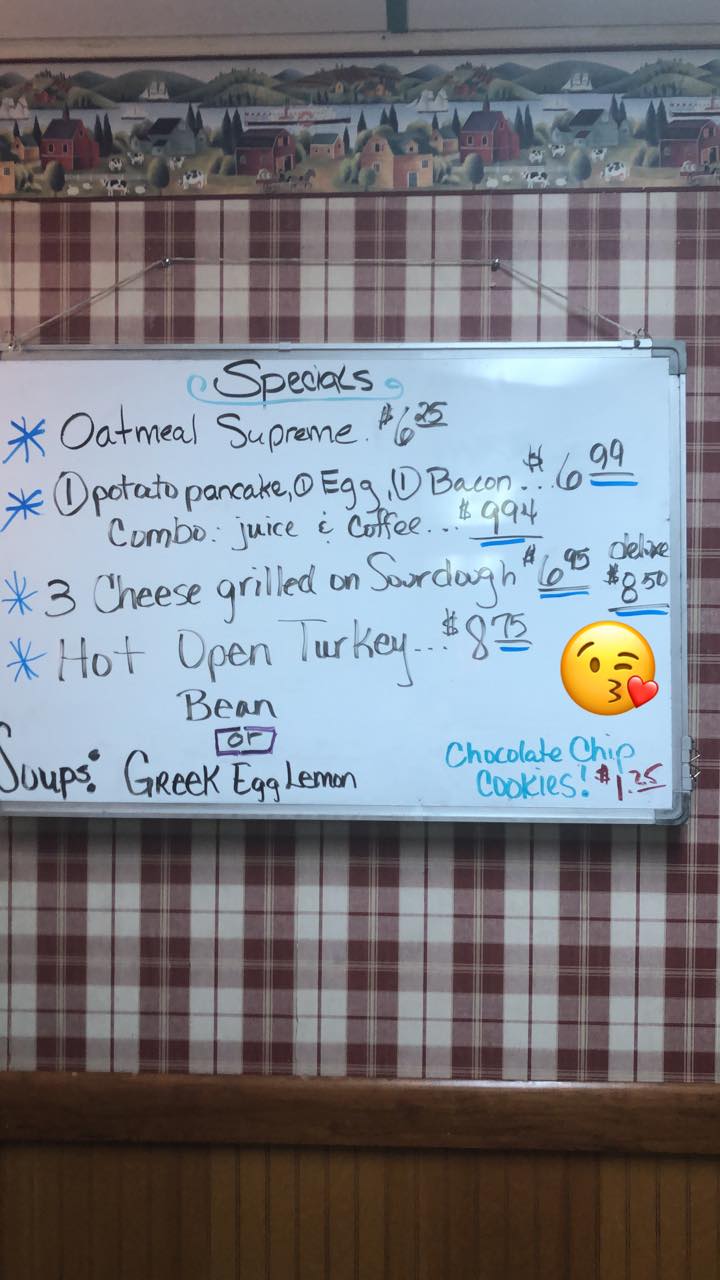 Specials
* Oatmeal Supreme. $6 25
* ① potato pancake, ① Egg, ① Bacon... $6 99
Combo: juice & Coffee... $994
* 3 Cheese grilled on Sourdough $6 95 deluxe $8 50
* Hot Open Turkey... $8 75
Bean
or
Soups: Greek Egg Lemon
Chocolate Chip
Cookies! $1.25